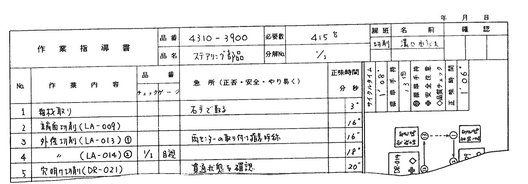 年 月 日
作業指導書
品番 4310-3900 必要数 415ケ
品名 ステアリング部品 分解No. 1/2
属班 名前 確認
切削
No. 作業内容 品番 急所（正否・安全・やり易く） 正味時間
チェックゲージ 分 秒
サイクルタイム 1'08"
標準手持 13個
安全注意
品質チェック
正味時間 1'06"
1 粗材取り 右手で取る 3"
2 端面切削(LA-009) 16"
3 外径切削(LA-013)① 両センターの取り付け確認 16"
4 〃 (LA-014)② 1/2 目視 18"
5 穴明け切削(DR-021) 貫通状態を確認 20"